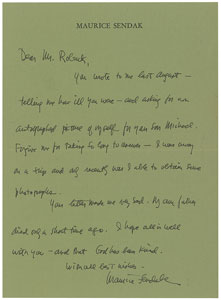 MAURICE SENDAK
Dear Mr. Rolnick,
You wrote to me last August –
telling me how ill you were – and asking for an
autographed picture of myself for your son Michael.
Forgive me for taking so long to answer – I was away
on a trip and only recently was I able to obtain some
photographs.
Your letter made me very sad. My own father
died only a short time ago. I hope all is well
with you – and that God has been kind.
With all best wishes –
Maurice Sendak